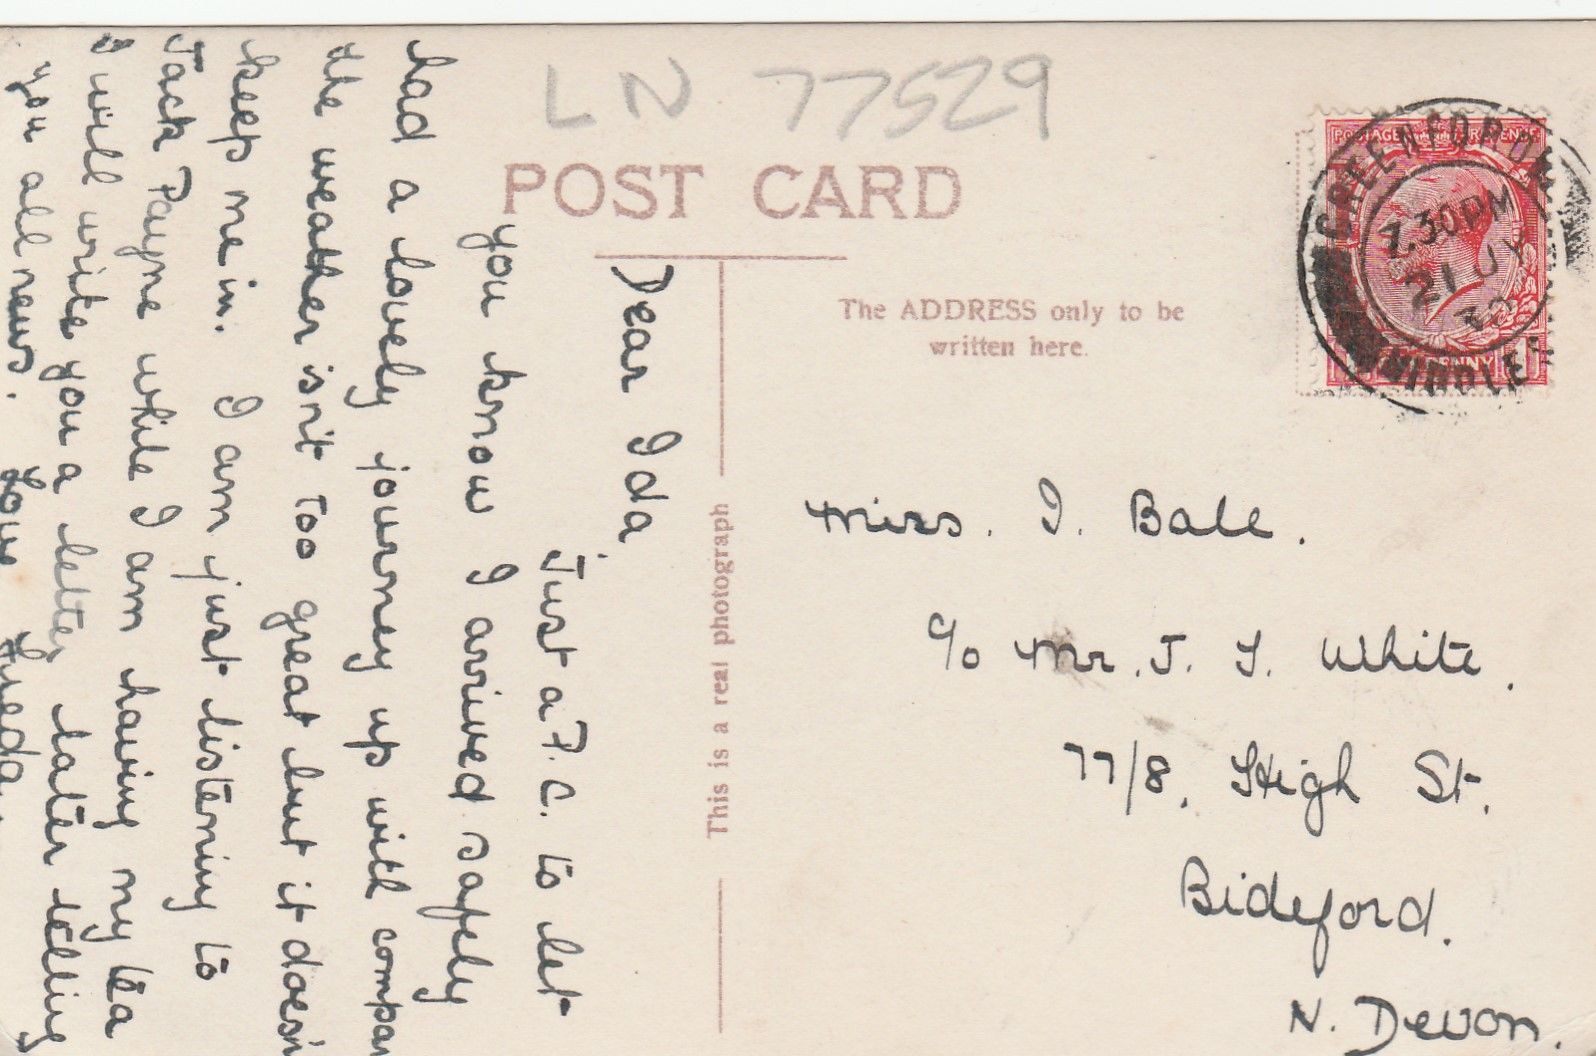 LN 77529
POST CARD
The ADDRESS only to be
written here.
This is a real photograph
GREENFORD
7.30 PM
21 JY
32
MIDDLE
POSTAGE
PENNY
Dear Ida,
Just a P.C. to let
you know I arrived safely
had a lovely journey up with compa
the weather isn't too great but it doesn
keep me in. I am just listening to
Jack Payne while I am having my tea
I will write you a letter later telling
you all news. Love Freda.
Miss. I. Bale.
c/o Mr. J. T. White.
77/8, High St.
Bideford.
N. Devon.